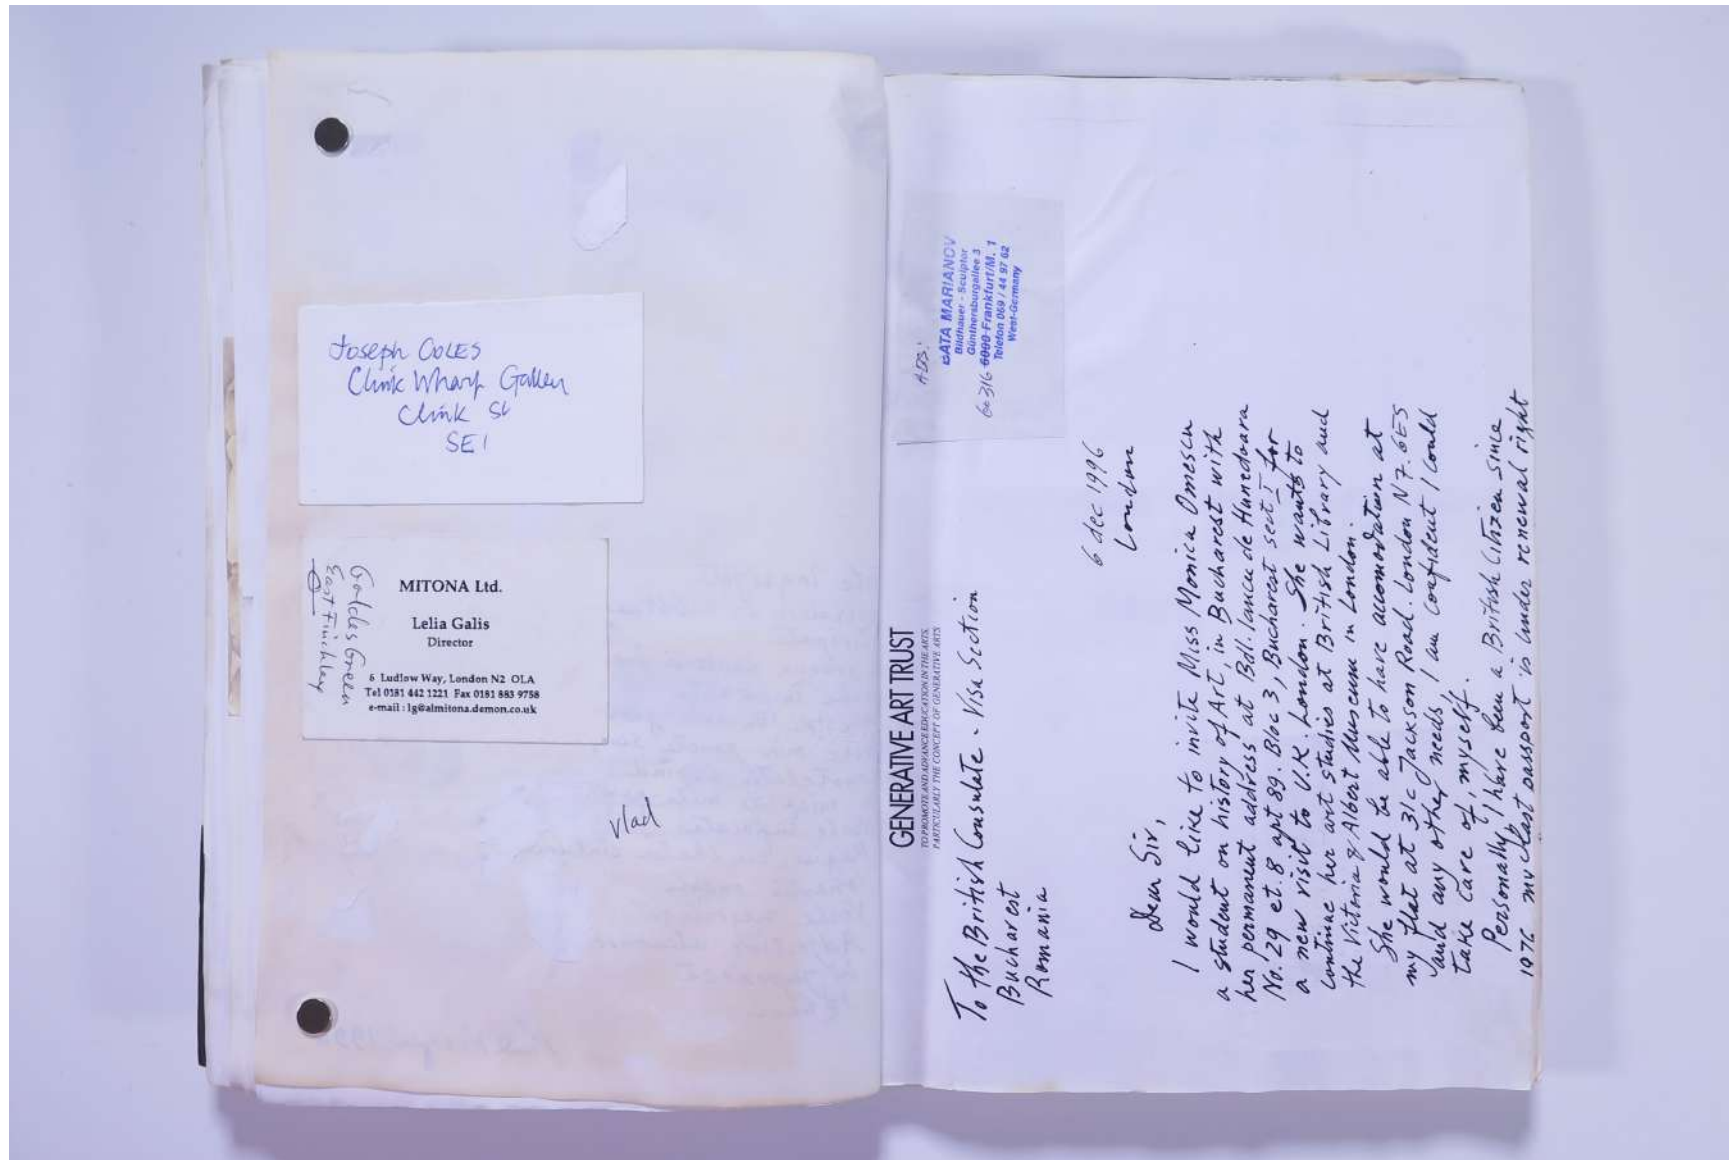 Joseph COLES
Clink Wharf Gallery
Clink St
SE1
Golders Green
East Finchley
MITONA Ltd.
Lelia Galis
Director
6 Ludlow Way, London N2 OLA
Tel 0181 442 1221 Fax 0181 883 9758
e-mail : lg@almitona.demon.co.uk
vlad
GENERATIVE ART TRUST
TO PROMOTE AND ADVANCE EDUCATION IN THE ARTS,
PARTICULARLY THE CONCEPT OF GENERATIVE ARTS
ADS:
GATA MARIANOV
Bildhauer - Sculptor
Günthersburgallee 3
60316 6000 Frankfurt/M. 1
Telefon 069 / 44 97 62
West-Germany
To the British Consulate - Visa Section
Bucharest
Romania
6 dec 1996
London
Dear Sir,
I would like to invite Miss Monica Omescu
a student on history of Art, in Bucharest with
her permanent address at Bdl. Iancu de Hunedoara
No. 29 et. 8 apt 89. Bloc 3, Bucharest sect I for
a new visit to U.K. London. She wants to
continue her art studies at British Library and
the Vitoria & Albert Museum in London.
She would be able to have accomodation at
my flat at 31c Jackson Road. London N7. 6ES
and any other needs, I am confident I could
take care of, myself.
Personally, I have been a British Citizen since
1976 my last passport is under renewal right